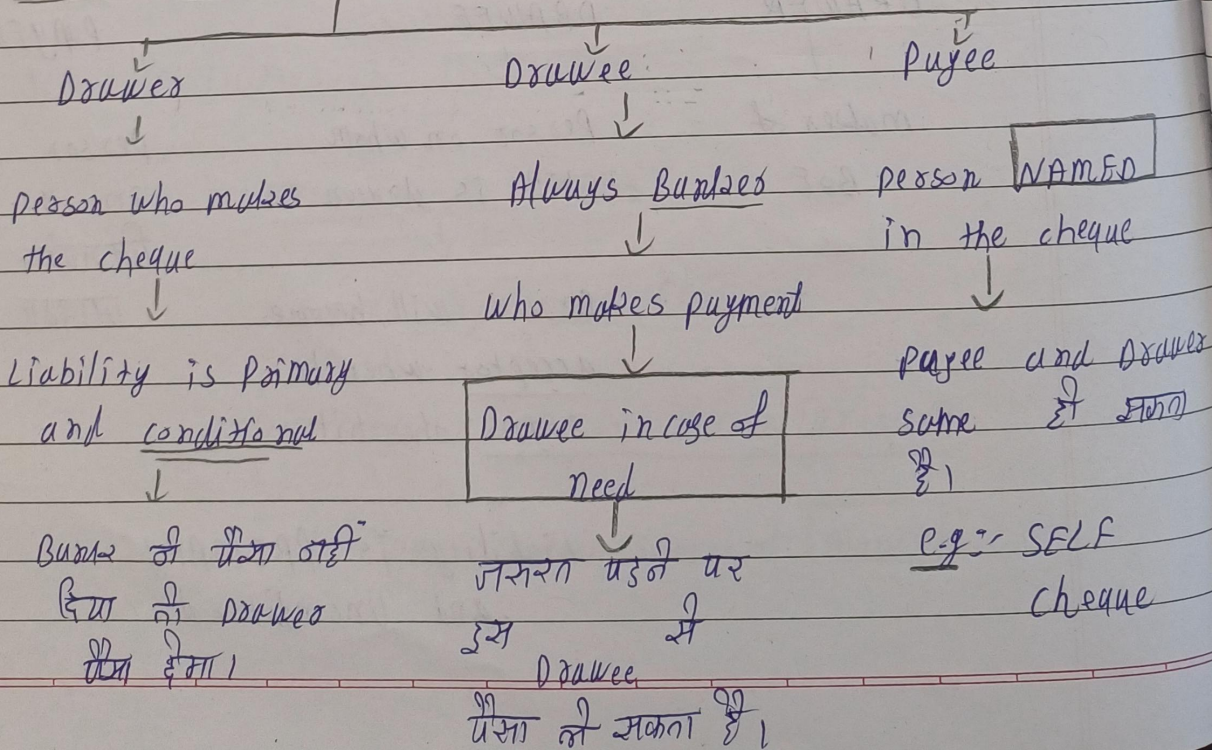 Drawer
Person who makes
the cheque
Liability is Primary
and conditional
Bank ने पैसा नहीं
दिया तो Drawer
पैसा देगा।
Drawee
Always Banker
who makes payment
Drawee in case of
need
जरुरत पडने पर
इस से
Drawee
पैसा ले सकता है।
Payee
person NAMED
in the cheque
payee and Drawer
same हो सकता
है।
e.g:- SELF
cheque